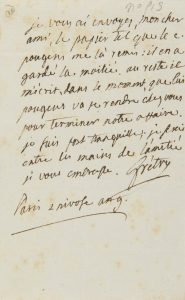 je vous ai envoyés, mon cher
ami, le papier tel que le c.
pougens me l'a remis; il en a
gardé la moitié, au reste il
m'écrit, dans le moment que, lui
pougens va se rendre chez vous
pour terminer notre affaire.
je suis fort tranquille; je suis
entre les mains de l'amitié
je vous embrasse. Grétry
Paris 2 nivose an 9.